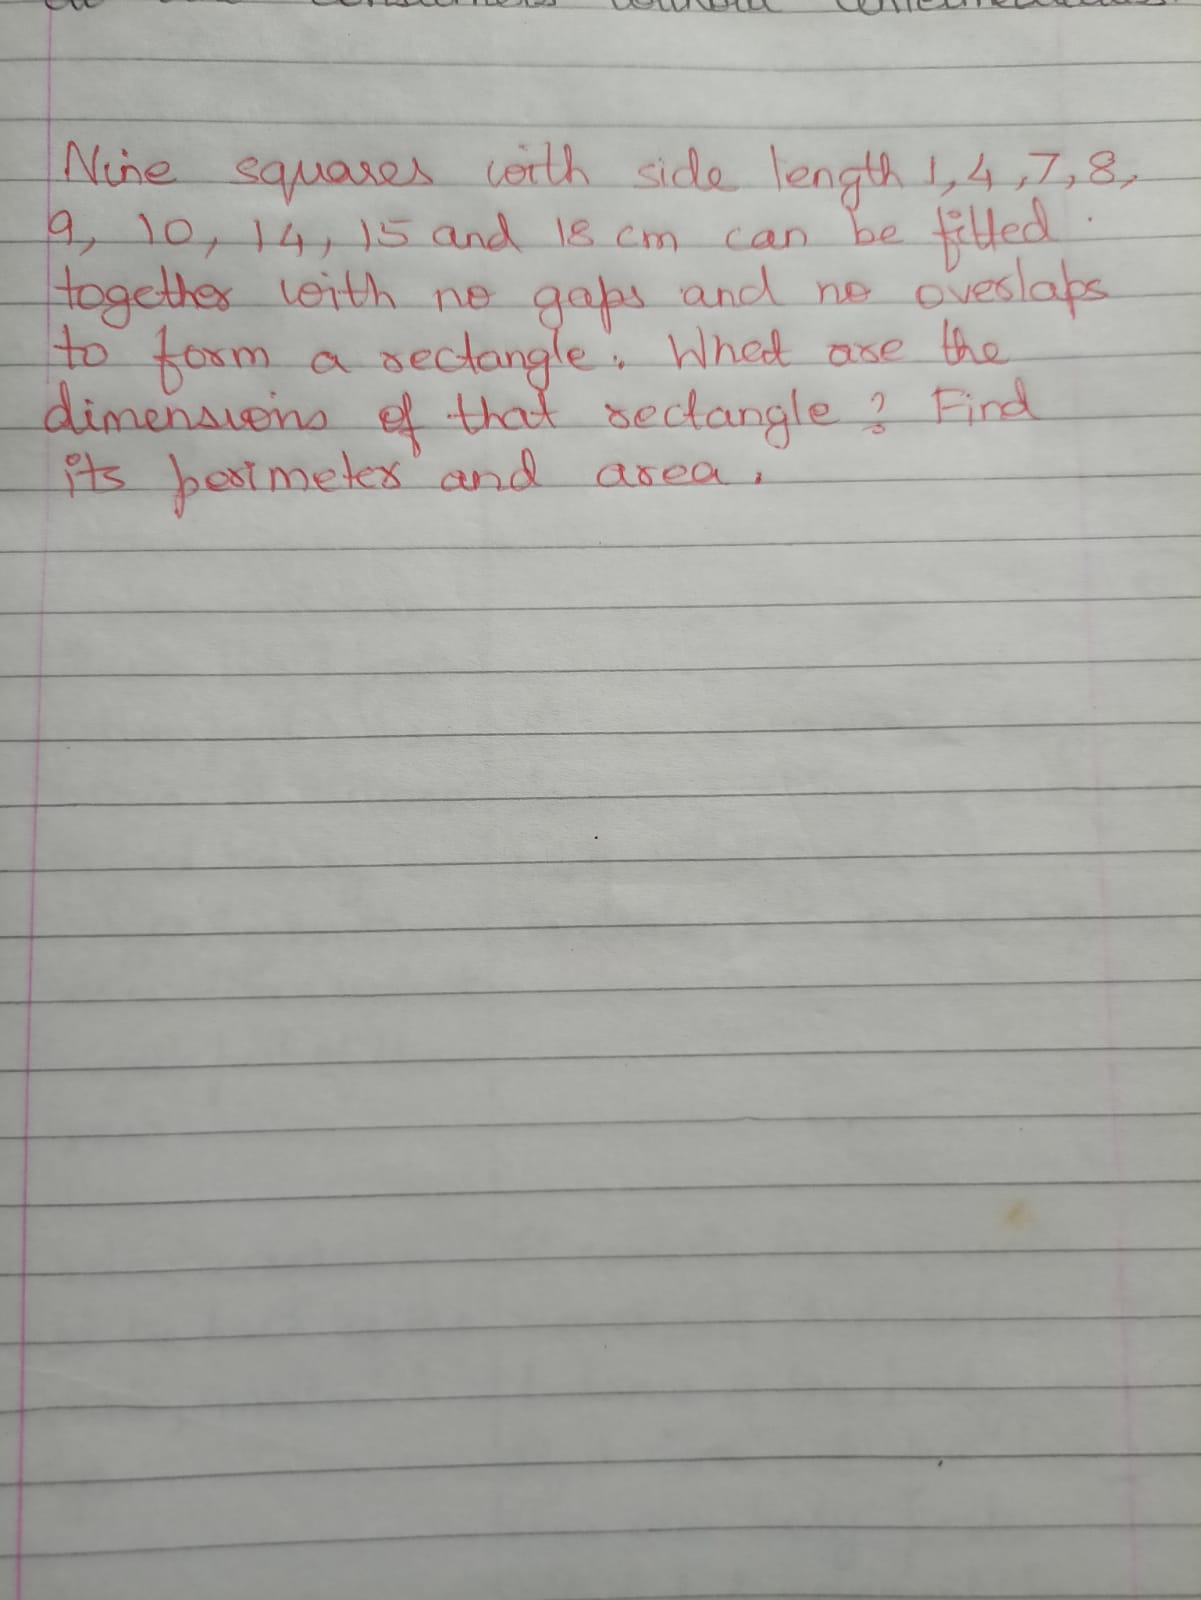 Nine squares with side length 1, 4, 7, 8,
9, 10, 14, 15 and 18 cm can be fitted
together with no gaps and no overlaps
to form a rectangle. What are the
dimensions of that rectangle? Find
its perimeter and area.